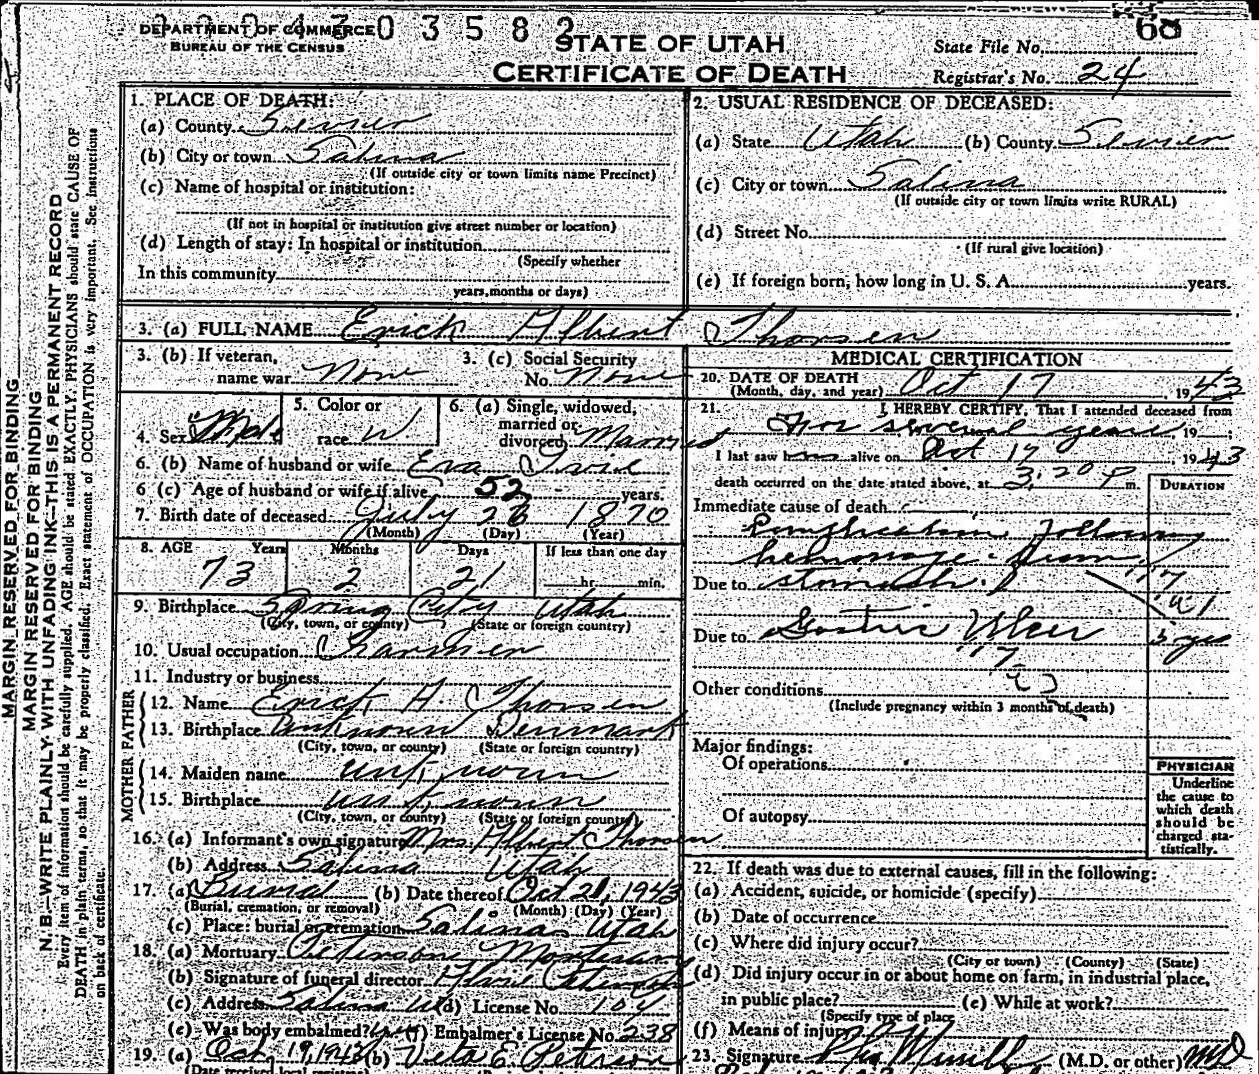 DEPARTMENT OF COMMERCE
BUREAU OF THE CENSUS
0 3 5 8 2
STATE OF UTAH
CERTIFICATE OF DEATH
68
State File No.
Registrar's No. 24
MARGIN RESERVED FOR BINDING
MARGIN RESERVED FOR BINDING
N. B.—WRITE PLAINLY, WITH UNFADING INK—THIS IS A PERMANENT RECORD
Every item of information should be carefully supplied. AGE should be stated EXACTLY. PHYSICIANS should state CAUSE OF
DEATH in plain terms, so that it may be properly classified. Exact statement of OCCUPATION is very important. See instructions
on back of certificate.
1. PLACE OF DEATH:
(a) County Sevier
(b) City or town Salina
(If outside city or town limits name Precinct)
(c) Name of hospital or institution:
(If not in hospital or institution give street number or location)
(d) Length of stay: In hospital or institution
(Specify whether
In this community
years, months or days)
2. USUAL RESIDENCE OF DECEASED:
(a) State Utah (b) County Sevier
(c) City or town Salina
(If outside city or town limits write RURAL)
(d) Street No.
(If rural give location)
(e) If foreign born, how long in U. S. A. years.
3. (a) FULL NAME Erick Albert Thorsen
3. (b) If veteran, name war None
3. (c) Social Security No. None
4. Sex Male
5. Color or race W
6. (a) Single, widowed, married or divorced Married
6. (b) Name of husband or wife Eva
6 (c) Age of husband or wife if alive 52 years.
7. Birth date of deceased July 26 1870
(Month) (Day) (Year)
8. AGE Years Months Days If less than one day
73 2 21 hr. min.
9. Birthplace Spring City Utah
(City, town, or county) (State or foreign country)
10. Usual occupation Farmer
11. Industry or business
FATHER
12. Name Erick A. Thorsen
13. Birthplace unknown Denmark
(City, town, or county) (State or foreign country)
MOTHER
14. Maiden name unknown
15. Birthplace unknown
(City, town, or county) (State or foreign country)
16. (a) Informant's own signature Mrs. Albert Thorsen
(b) Address Salina Utah
17. (a) Burial (b) Date thereof Oct 21, 1943
(Burial, cremation, or removal) (Month) (Day) (Year)
(c) Place: burial or cremation Salina Utah
18. (a) Mortuary Peterson Mortuary
(b) Signature of funeral director Peterson
(c) Address Salina Ut (d) License No. 104
(e) Was body embalmed? yes (f) Embalmer's License No. 238
19. (a) Oct. 19, 1943 (b) Veta E. Peterson
(Date received local registrar)
MEDICAL CERTIFICATION
20. DATE OF DEATH Oct 17 1943
(Month, day, and year)
21. I HEREBY CERTIFY, That I attended deceased from
For several years, 19
I last saw h alive on Oct 17 1943
death occurred on the date stated above, at 3:20 P m.
DURATION
Immediate cause of death
following
hemorrage from
Due to stomach.
Due to Gastric Ulcer 3 yrs
Other conditions
(Include pregnancy within 3 months of death)
Major findings:
Of operations
Of autopsy
PHYSICIAN
Underline
the cause to
which death
should be
charged sta-
tistically.
22. If death was due to external causes, fill in the following:
(a) Accident, suicide, or homicide (specify)
(b) Date of occurrence
(c) Where did injury occur?
(City or town) (County) (State)
(d) Did injury occur in or about home on farm, in industrial place,
in public place? (e) While at work?
(Specify type of place
(f) Means of injury
23. Signature (M.D. or other) MD